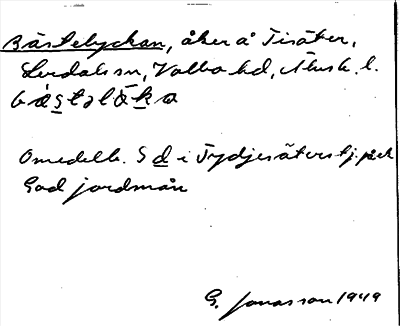 Bästelyckan, åker å Tisäter,
Lerdals sn, Valbo hd, Älvsb. l.
bàstalỳka
Omedelb. S d i Tydjesäters tj. på ek
God jordmån
G. Jonasson 1949